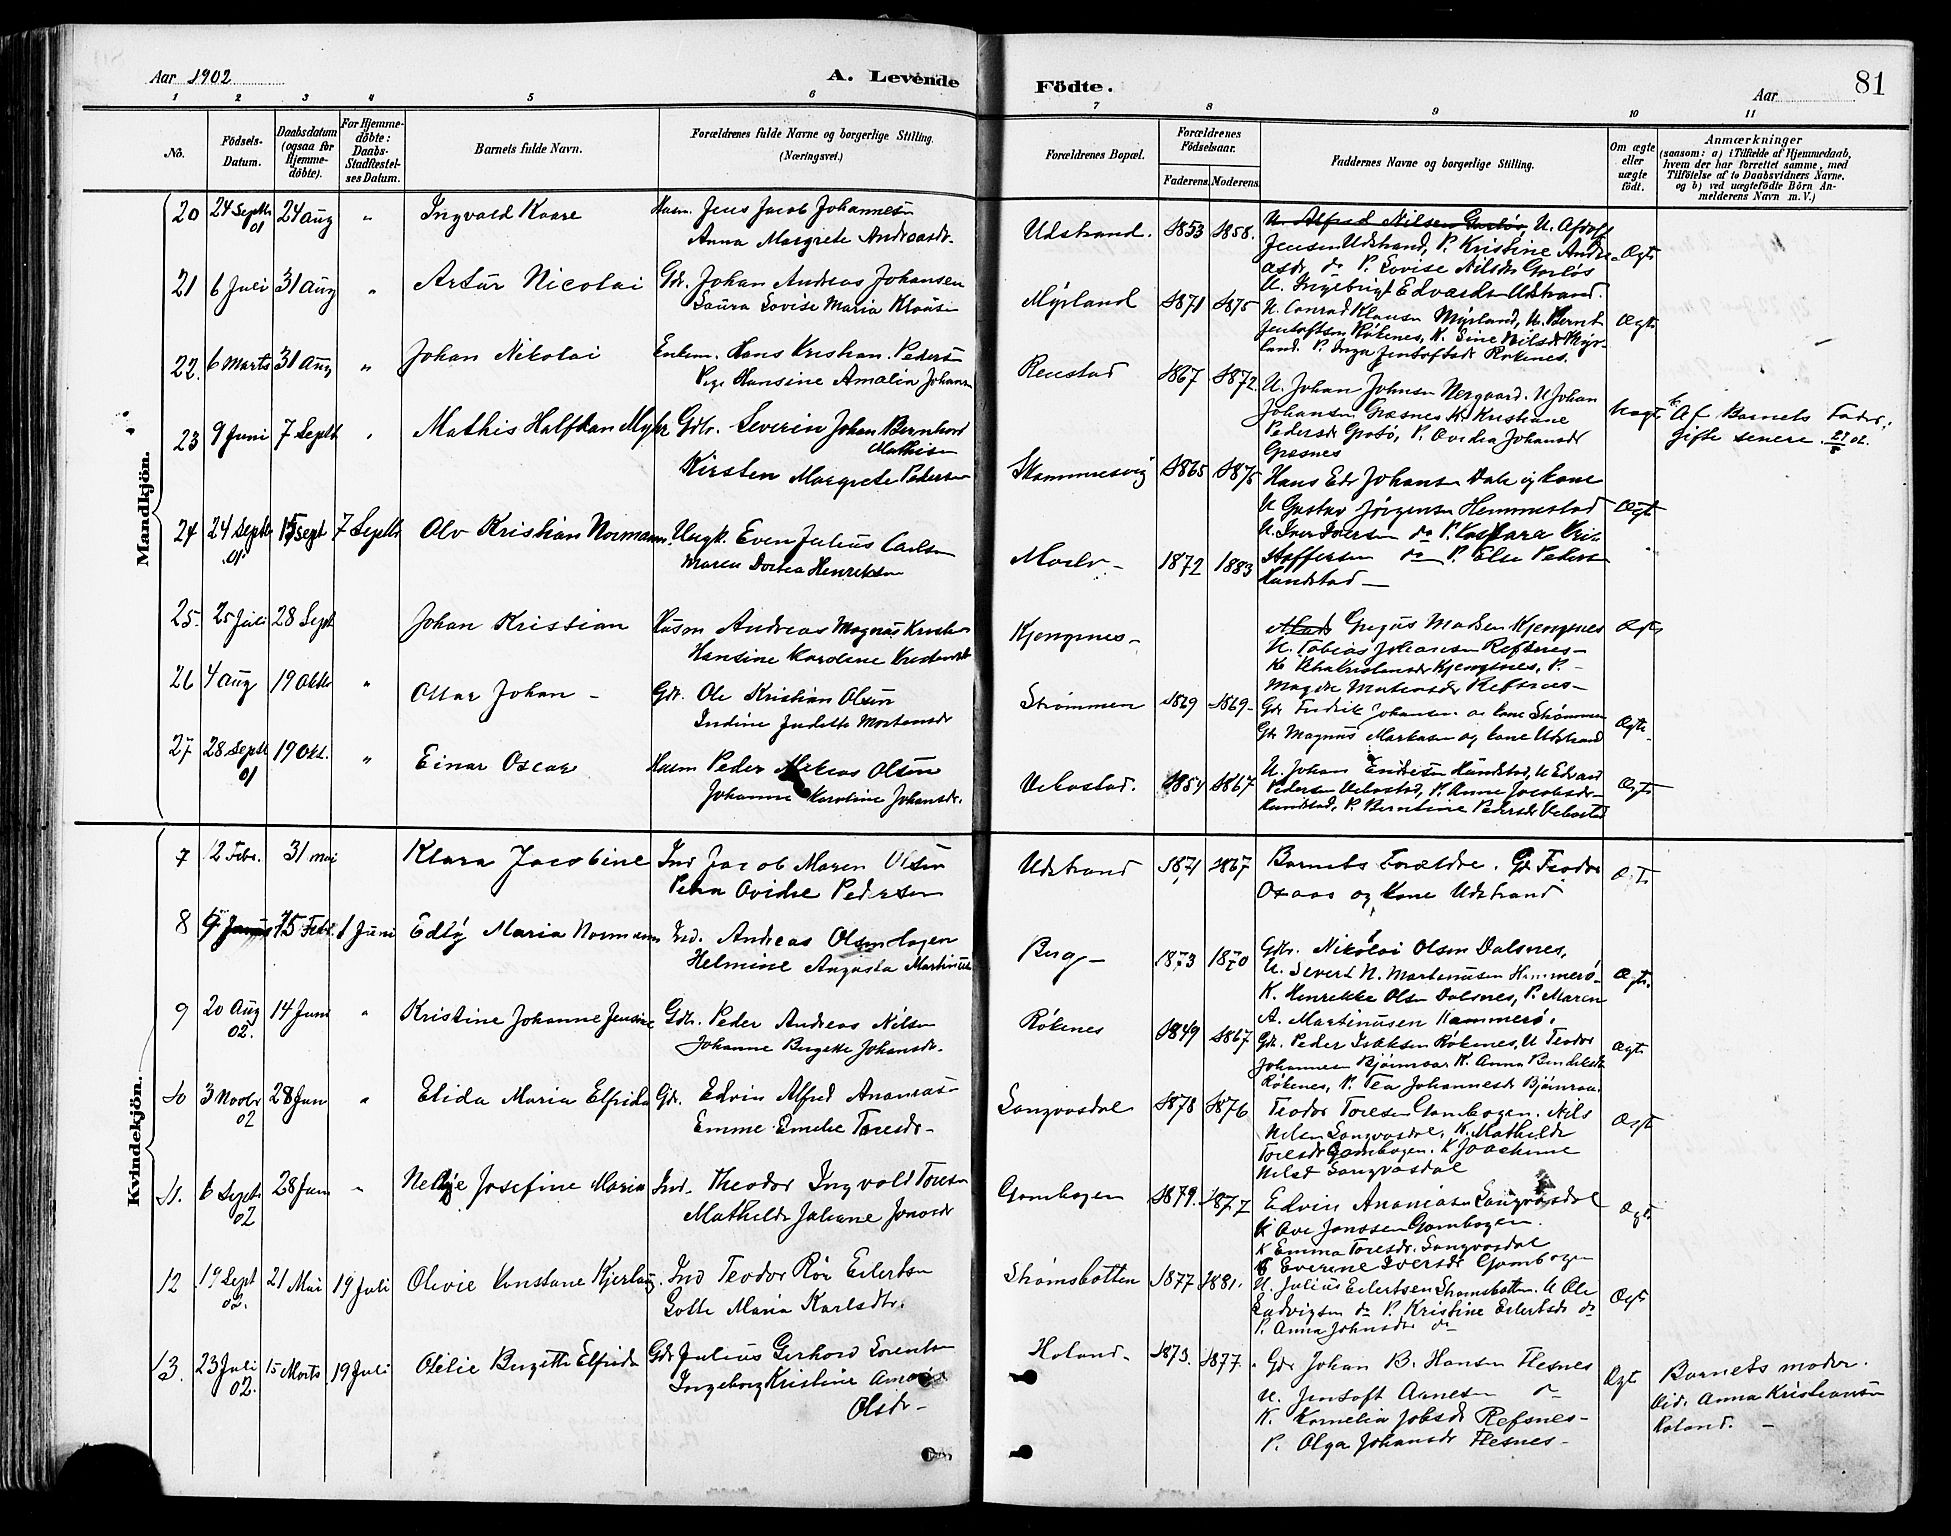 Aar 1902
A. Levende
Födte.
Aar
81
1 2 3 4 5 6 7 8 9 10 11
No.
Födsels-Datum.
Daabsdatum (ogsaa for Hjemmedöbte).
For Hjemmedöbte: Daabs-Stadfestelses Datum.
Barnets fulde Navn.
Forældrenes fulde Navne og borgerlige Stilling.
(Næringsvei.)
Forældrenes Bopæl.
Forældrenes Födselsaar.
Faderens. Moderens.
Faddernes Navne og borgerlige Stilling.
Om ægte eller uægte födt.
Anmærkninger
(saasom: a) i Tilfælde af Hjemmedaab,
hvem der har forrettet samme, med
Tilföielse af to Daabsvidners Navne,
og b) ved uægtefödte Börn Anmelderens Navn m. V.)
Mandkjön.
20 24 Septb 01 24 Aug " Ingvald Kaare
Husm. Jens Jacob Johannesen
Anna Margrete Andreasdr.
Udstrand. 1853 1858.
U. Alfred Nilsen Garsløs, U. Adolf
Jensen Udstrand, P. Kristine Andreasdr do P. Lovise Nilsdr Garsløs
U. Ingebrigt Edvardsen Udstrand.
Ægte
21 6 Juli 31 Aug " Artur Nicolai
Gdr. Johan Andreas Johansen
Laura Lovise Maria Klausen
Myrland 1871 1875
U. Conrad Klausen Myrland, U. Bernt
Jentoftsen Røkenes, K. Sine Nilsdr Myrland. P. Inga Jentoftsdr Røkenes.
Ægte
22. 6 Marts 31 Aug " Johan Nikolai
Enkem. Hans Kristian Pedersen
Pige Hansine Amalia Johansen
Renstad 1867 1872
U. Johan Johnsen Nergaard. U Johan
Johansen Græsnes K. Kristiane
Pedersdr Grøtø, P. Ovidia Johansdr
Græsnes
Uægte
Af Barnets Fader,
gifte senere.
23 9 Juni 7 Septb " Mathis Halfdan Myhr
Gdbr. Severin Johan Bernhard
Mathisen
Kirsten Margrete Pedersen
Skammesvig 1865 1876
Hans Edv Johansen Dale og kone
U Gustav Jørgensen Hemmestad
U. Iver Iversen do P. Kaspara Kristoffersen do P. Else Pedersen
Hundstad
Ægte
24 24 Septb 01 15 Sept 7 Septb Olv Kristian Normann
Ungk. Even Julius Carlsen
Maren Dortea Henriksen
Moelv 1872 1883
"
25. 25 Juli 28 Sept Johan Kristian
Husm Andreas Magnus Kristian
Hansine Karoline
Kjengsnes
Gregus Madsen Kjengsnes
U. Tobias Johansen Refsnes
Magda Mateasdr Refsnes
Ægte
26 4 Aug 19 Oktb " Ottar Johan
Gdr. Ole Kristian Olsen
Indine Judith Mortensdr
Strømmen 1869 1869
Gdr Fredrik Johansen og kone Strømmen
Gdr Magnus Markusen og kone Udstrand
Ægte
27 28 Septb 01 19 Okt. " Einar Oscar
Husm Peder Mikias Olsen
Johanne Karoline Johansdr.
Vebostad. 1854 1867
U. Johan Endresen Hundstad, U Edvard
Pedersen Vebostad, P. Anne Jacobsdr
Hundstad, P. Berntine Pedersdr Vebostad
Ægte
Kvindekjön.
7 2 Febr. 31 Mai Klara Jacobine
Ind Jacob Maren Olsen
Petra Ovidie Pedersen
Udstrand 1871 1867
Barnets Forældre. Gdr Teodor
Osaas og Kone Udstrand
Ægte
8 9 Janua 15 Febr. 1 Juni Edløy Maria Normann
Ind. Andreas Olsen
Helmine Augusta Martinus
Berg 1873 1870
Gdr. Nikolai Olsen Dalsnes,
U. Sivert N. Martinusen Hammerø
K. Henrikke Olsen Dalsnes, P. Maren
A. Martinusen Hammerø.
Ægte.
9 20 Aug 02. 14 Juni " Kristine Johanne Jensine
Gdbr. Peder Andreas Nilsen
Johanne Bergitte Johansdr.
Røkenes 1849 1867
Gdr. Peder Isaksen Røkenes, U Teodor
Johannesen Bjørnraa. K. Anna Bendiksdr
Røkenes, P. Tea Johannesdr Bjørnraa.
Ægte
10 3 Novbr 02 28 Jun " Elida Maria Elfrida
Gdr. Edvin Alfred Ananias
Emme Emelie Toresdr
Langvasdal 1878 1876
Teodor Toresen Gambogen. Nils
Nilsen Langvasdal, K. Mathilde
Toresdr Gambogen. K Joachime
Nilsd Langvasdal
Ægt
11. 6 Sept 02 28 Jun " Nelye Josefine Maria
Ind. Theodor Ingvald Toresen
Mathilde Juliane Jonasdr
Gambogen 1879. 1877
Edvin Ananiasen Langvasdal
K Ave Jonssen Gambogen.
K Emma Toresdr. Langvasdal
K Everine Iversdr Gambogen
Ægt.
12 19 Sept 02. 21 Mai 19 Juli Olivie Konstane Kjerlaug.
Ind Teodor Røv Eilertsen
Lotte Maria Karlsdtr.
Strømsbotten 1877 1881.
U. Julius Eilertsen Strømsbotten. U Ole
Ludvigsen do P. Kristine Eilertsdr do
P. Anna Johnsdr do
Ægte
13. 23 Juli 02. 15 Marts 19 Juli Otelie Bergitte Elfrida
Gdr Julius Gerhard Lorentsen
Ingeborg Kristine
Olsdr
Holand. 1873. 1877.
Gdr Johan B. Hansen Flesnes
U. Jentoft Arnesen do
K. Kornelia Jakobsdr Refsnes
P. Olga Johansdr Flesnes
Ægt
Barnets moder.
Vid. Anna Kristiansen
Holand.